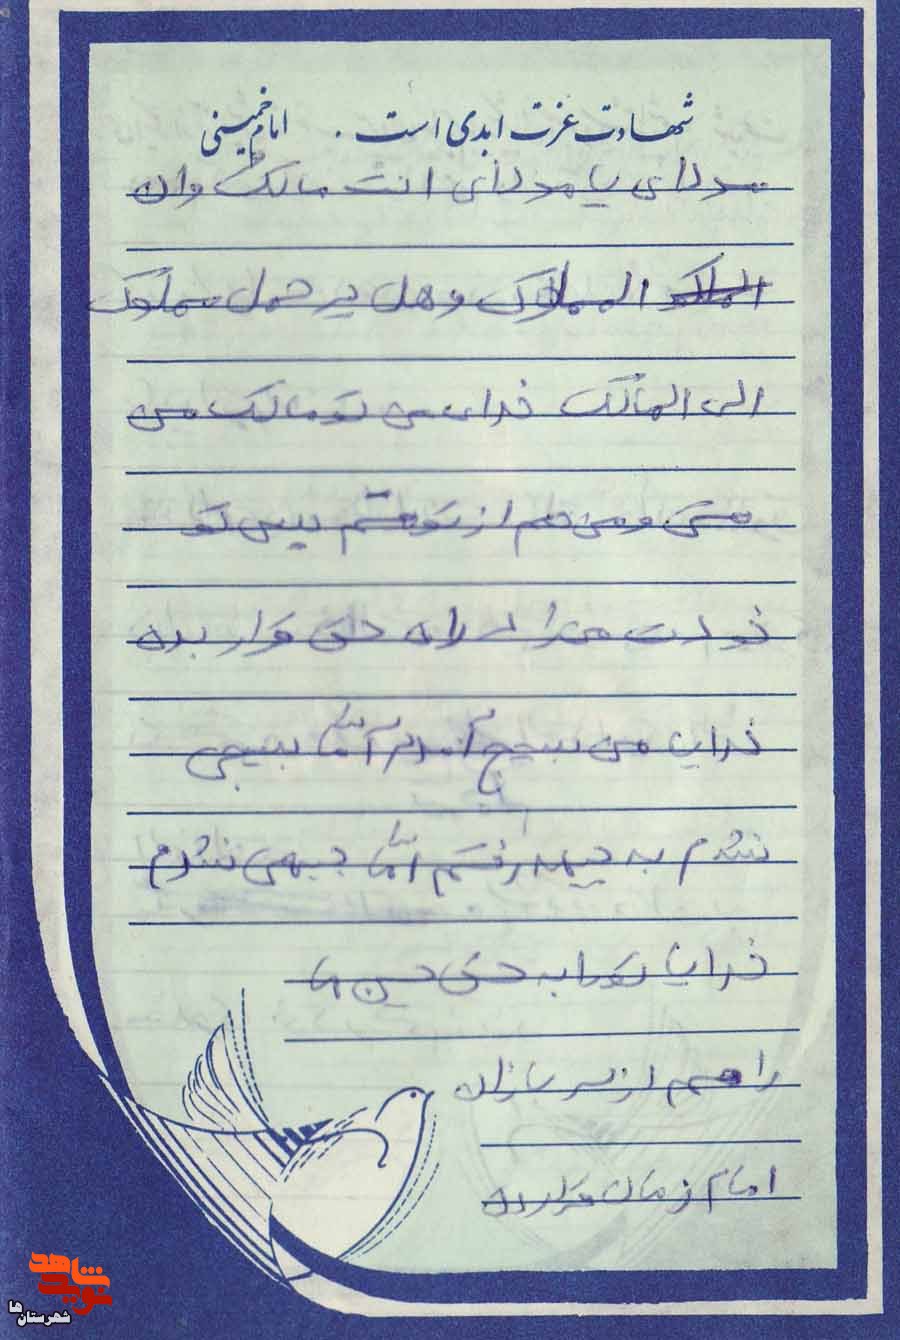 شهادت عزت ابدی است . امام خمینی
مولای یا مولای انت مالک وان
المملوک و هل یرحمل مملوک
الی المالک خدای من تو مالک من
هستی و من هم از تو هستم پس تو
خودت مرا در راه حق قرار بده
خدایا من بسیج آمدم اما بسیجی
نشدم به جبهه رفتم اما جبهی نشدم
خدایا تو را به حق حسین ما
را هم از سربازان
امام زمان قرار بده
نوید شاهد
شهرستان ها